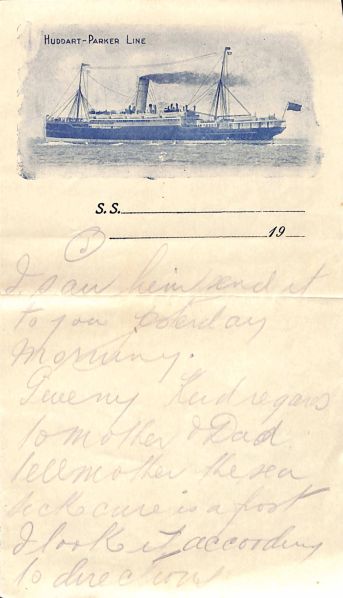 HUDDART-PARKER LINE
S.S.
19
I saw him send it
to you yesterday
Morning.
Give my Kind regards
to mother & Dad
tell mother the sea
sick cure is a
I took it according
to directions